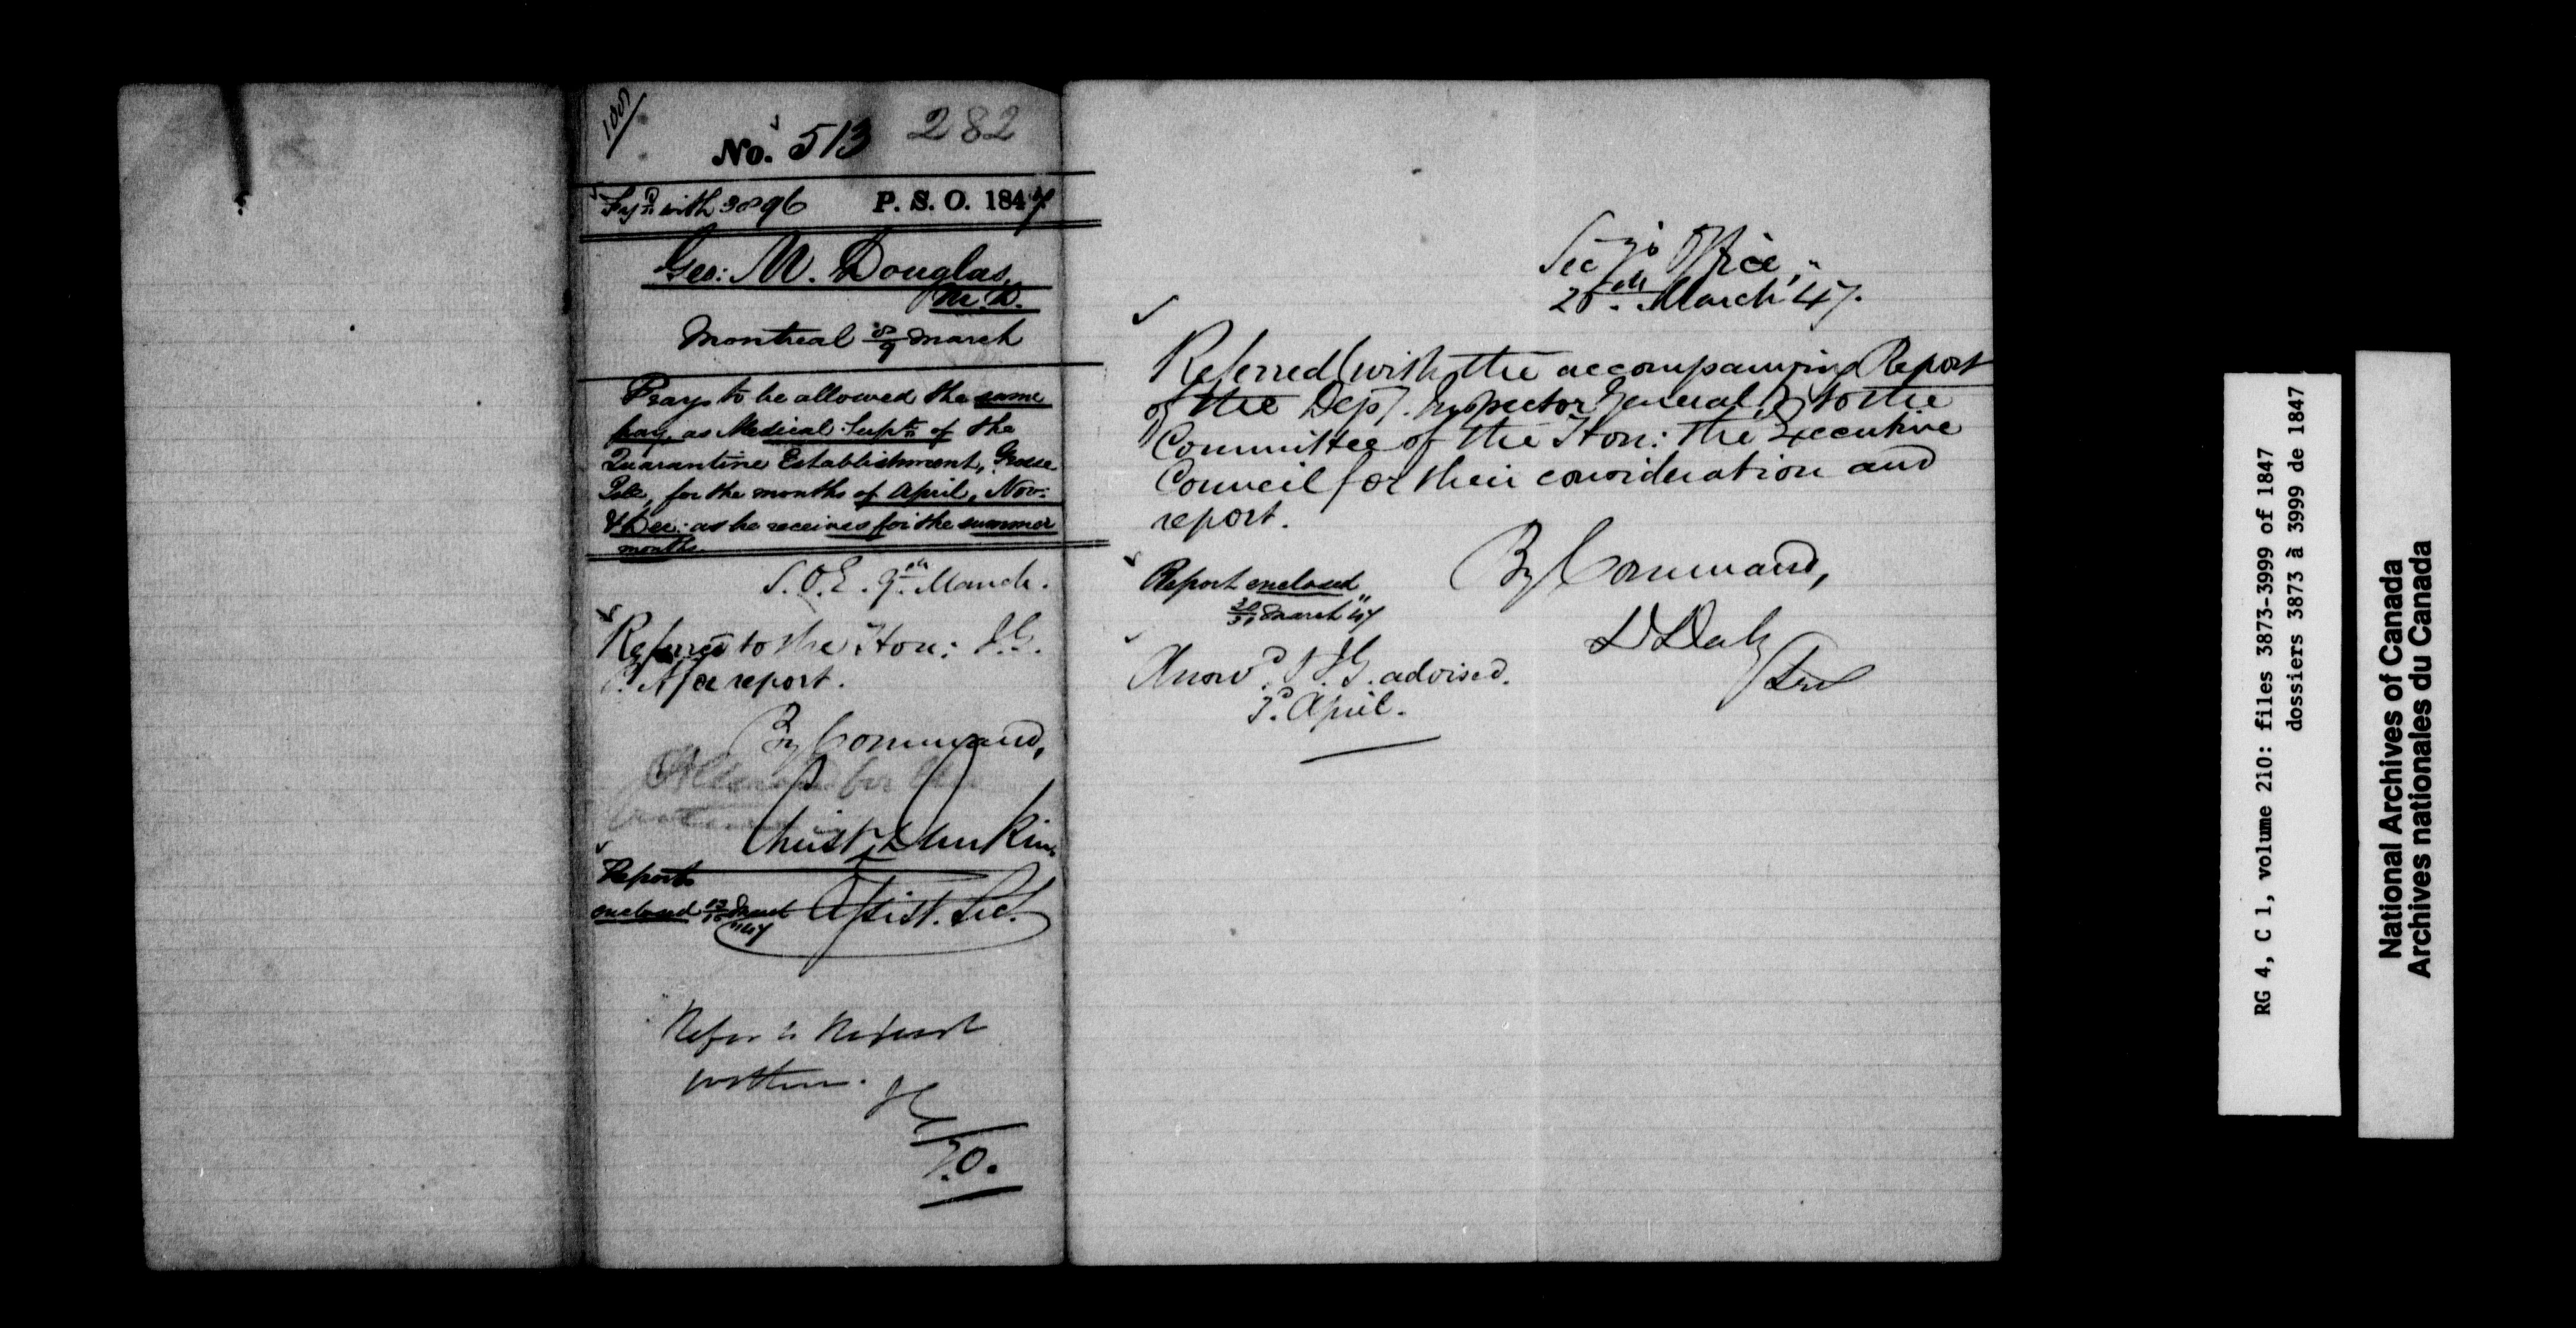 No. 513 282
Fyld with 3896 P. S. O. 1847
Geo: M. Douglas,
M.D.
Montreal 8/9 March
Prays to be allowed the same
pay, as Medical Supt. of the
Quarantine Establishment, Grosse
Isle, for the months of April, Nov:
& Dec: as he receives for the summer
months.
S.O.E. 9th March.
Referred to the Hon: I.G.
for report.
By Command,
Christ. Dunkin
Assist. Sec.
Report
enclosed March
Refer to
within.
Secy's Office,
20th March '47.
Referred (with the accompanying Report
of the Dep'y. Inspector General,) to the
Committee of the Hon: the Executive
Council for their consideration and
report.
By Command,
D Daly
Sec
Report enclosed
March '47
Answd. & I.G. advised.
3d. April.
RG 4, C 1, volume 210: files 3873-3999 of 1847
dossiers 3873 à 3999 de 1847
National Archives of Canada
Archives nationales du Canada